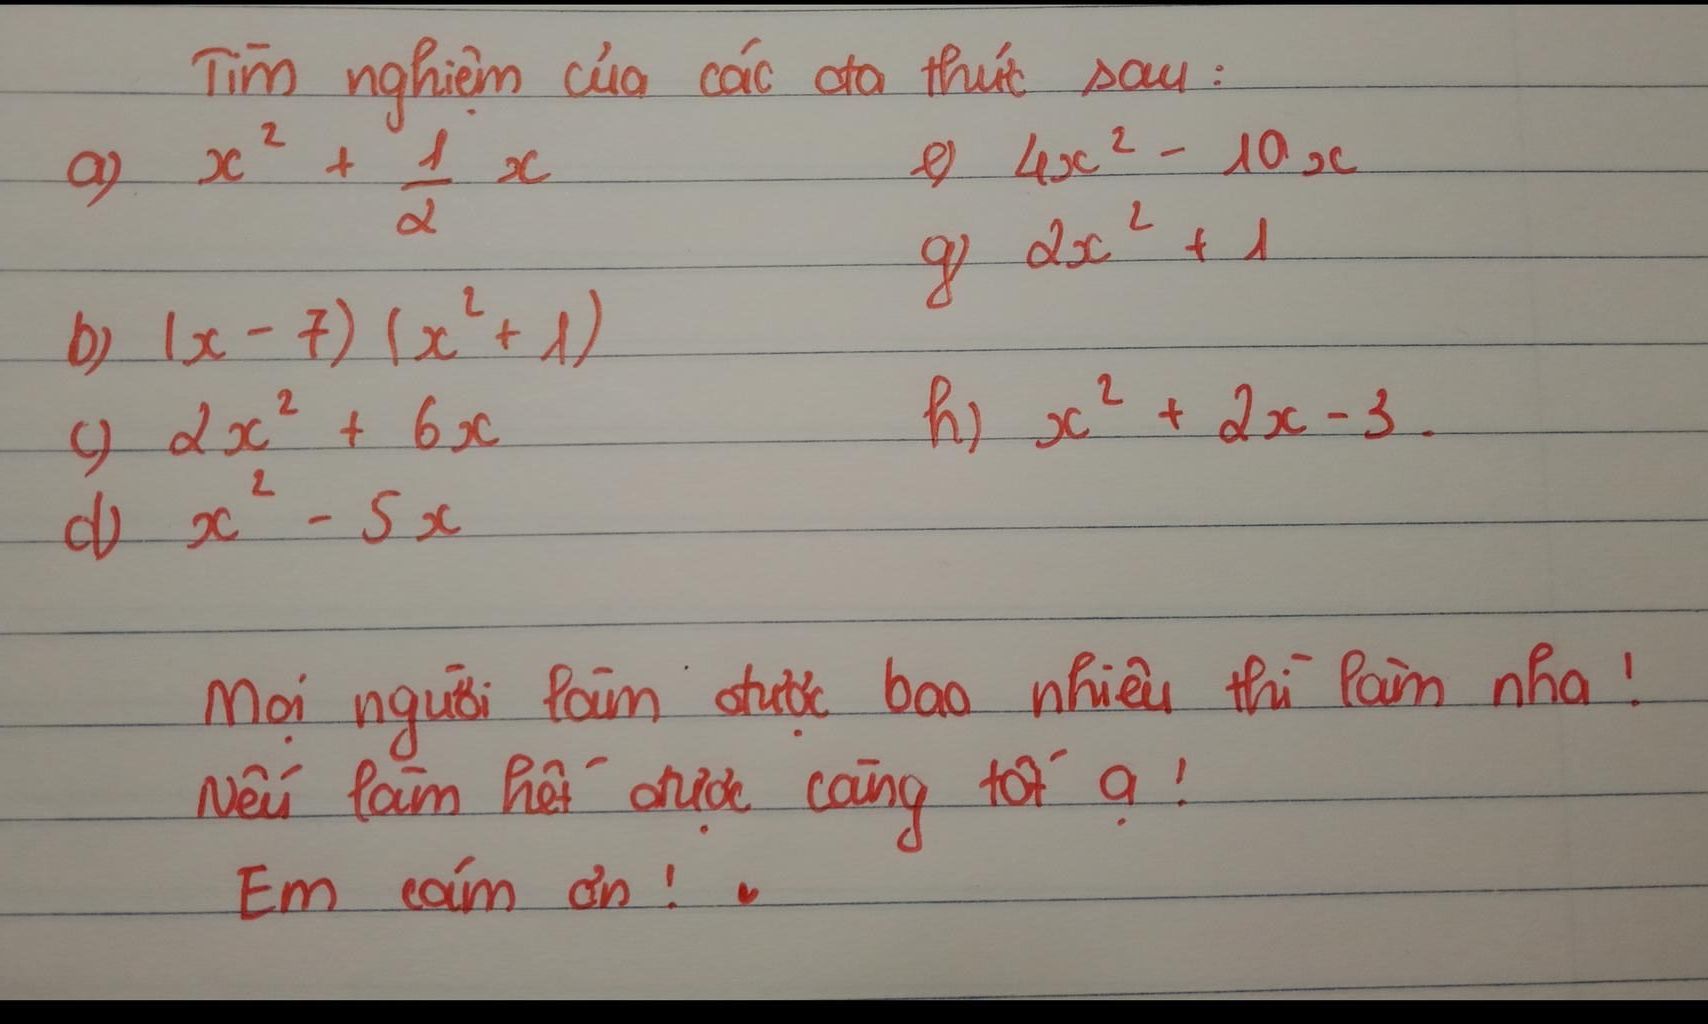 Tìm nghiệm của các đa thức sau:
a) x² + 1/2 x
b) (x - 7) (x² + 1)
c) 2x² + 6x
d) x² - 5x
e) 4x² - 10x
g) 2x² + 1
h) x² + 2x - 3.
Mọi người làm được bao nhiêu thì làm nha!
Nếu làm hết được càng tốt ạ!
Em cảm ơn!